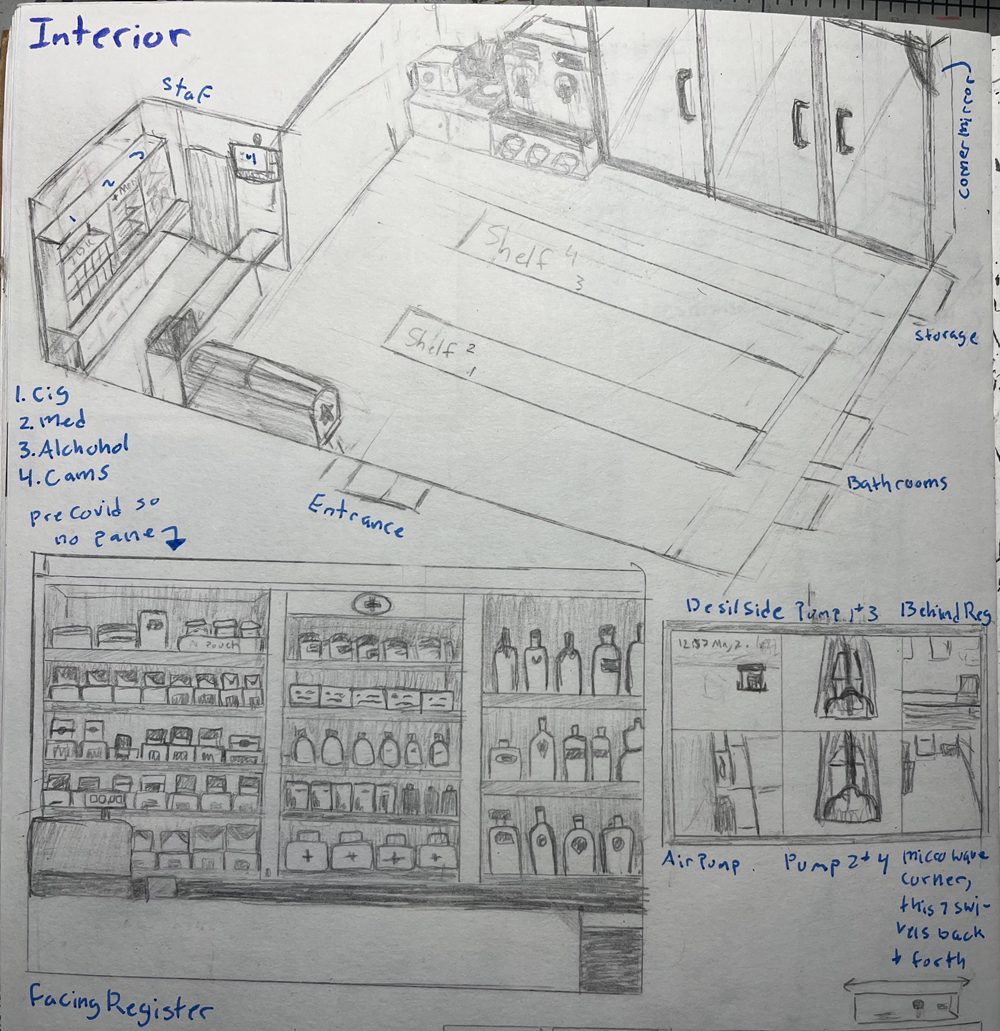 Interior
Staf
corner mirror
Shelf 4
3
Shelf 2
1
storage
1. Cig
2. Med
3. Alchohol
4. Cams
Bathrooms
Entrance
pre Covid so
no pane
Desil Side
Pump 1+3
Behind Reg
Air Pump
Pump 2+4
microwave
corner,
this 1 swi-
vels back
+ forth
Facing Register